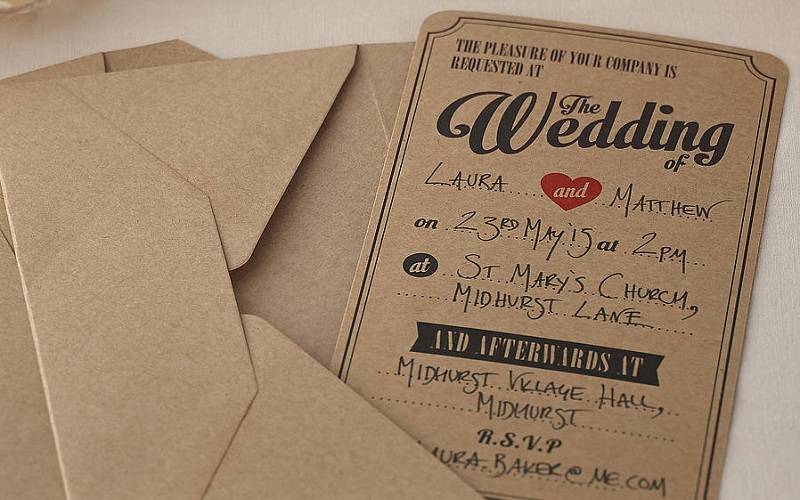 THE PLEASURE OF YOUR COMPANY IS
REQUESTED AT
The
Wedding
of
LAURA and MATTHEW
on 23RD MAY '15 at 2PM
at ST MARY'S CHURCH,
MIDHURST LANE
AND AFTERWARDS AT
MIDHURST VILLAGE HALL,
MIDHURST
R.S.V.P
LAURA.BAKER@ME.COM